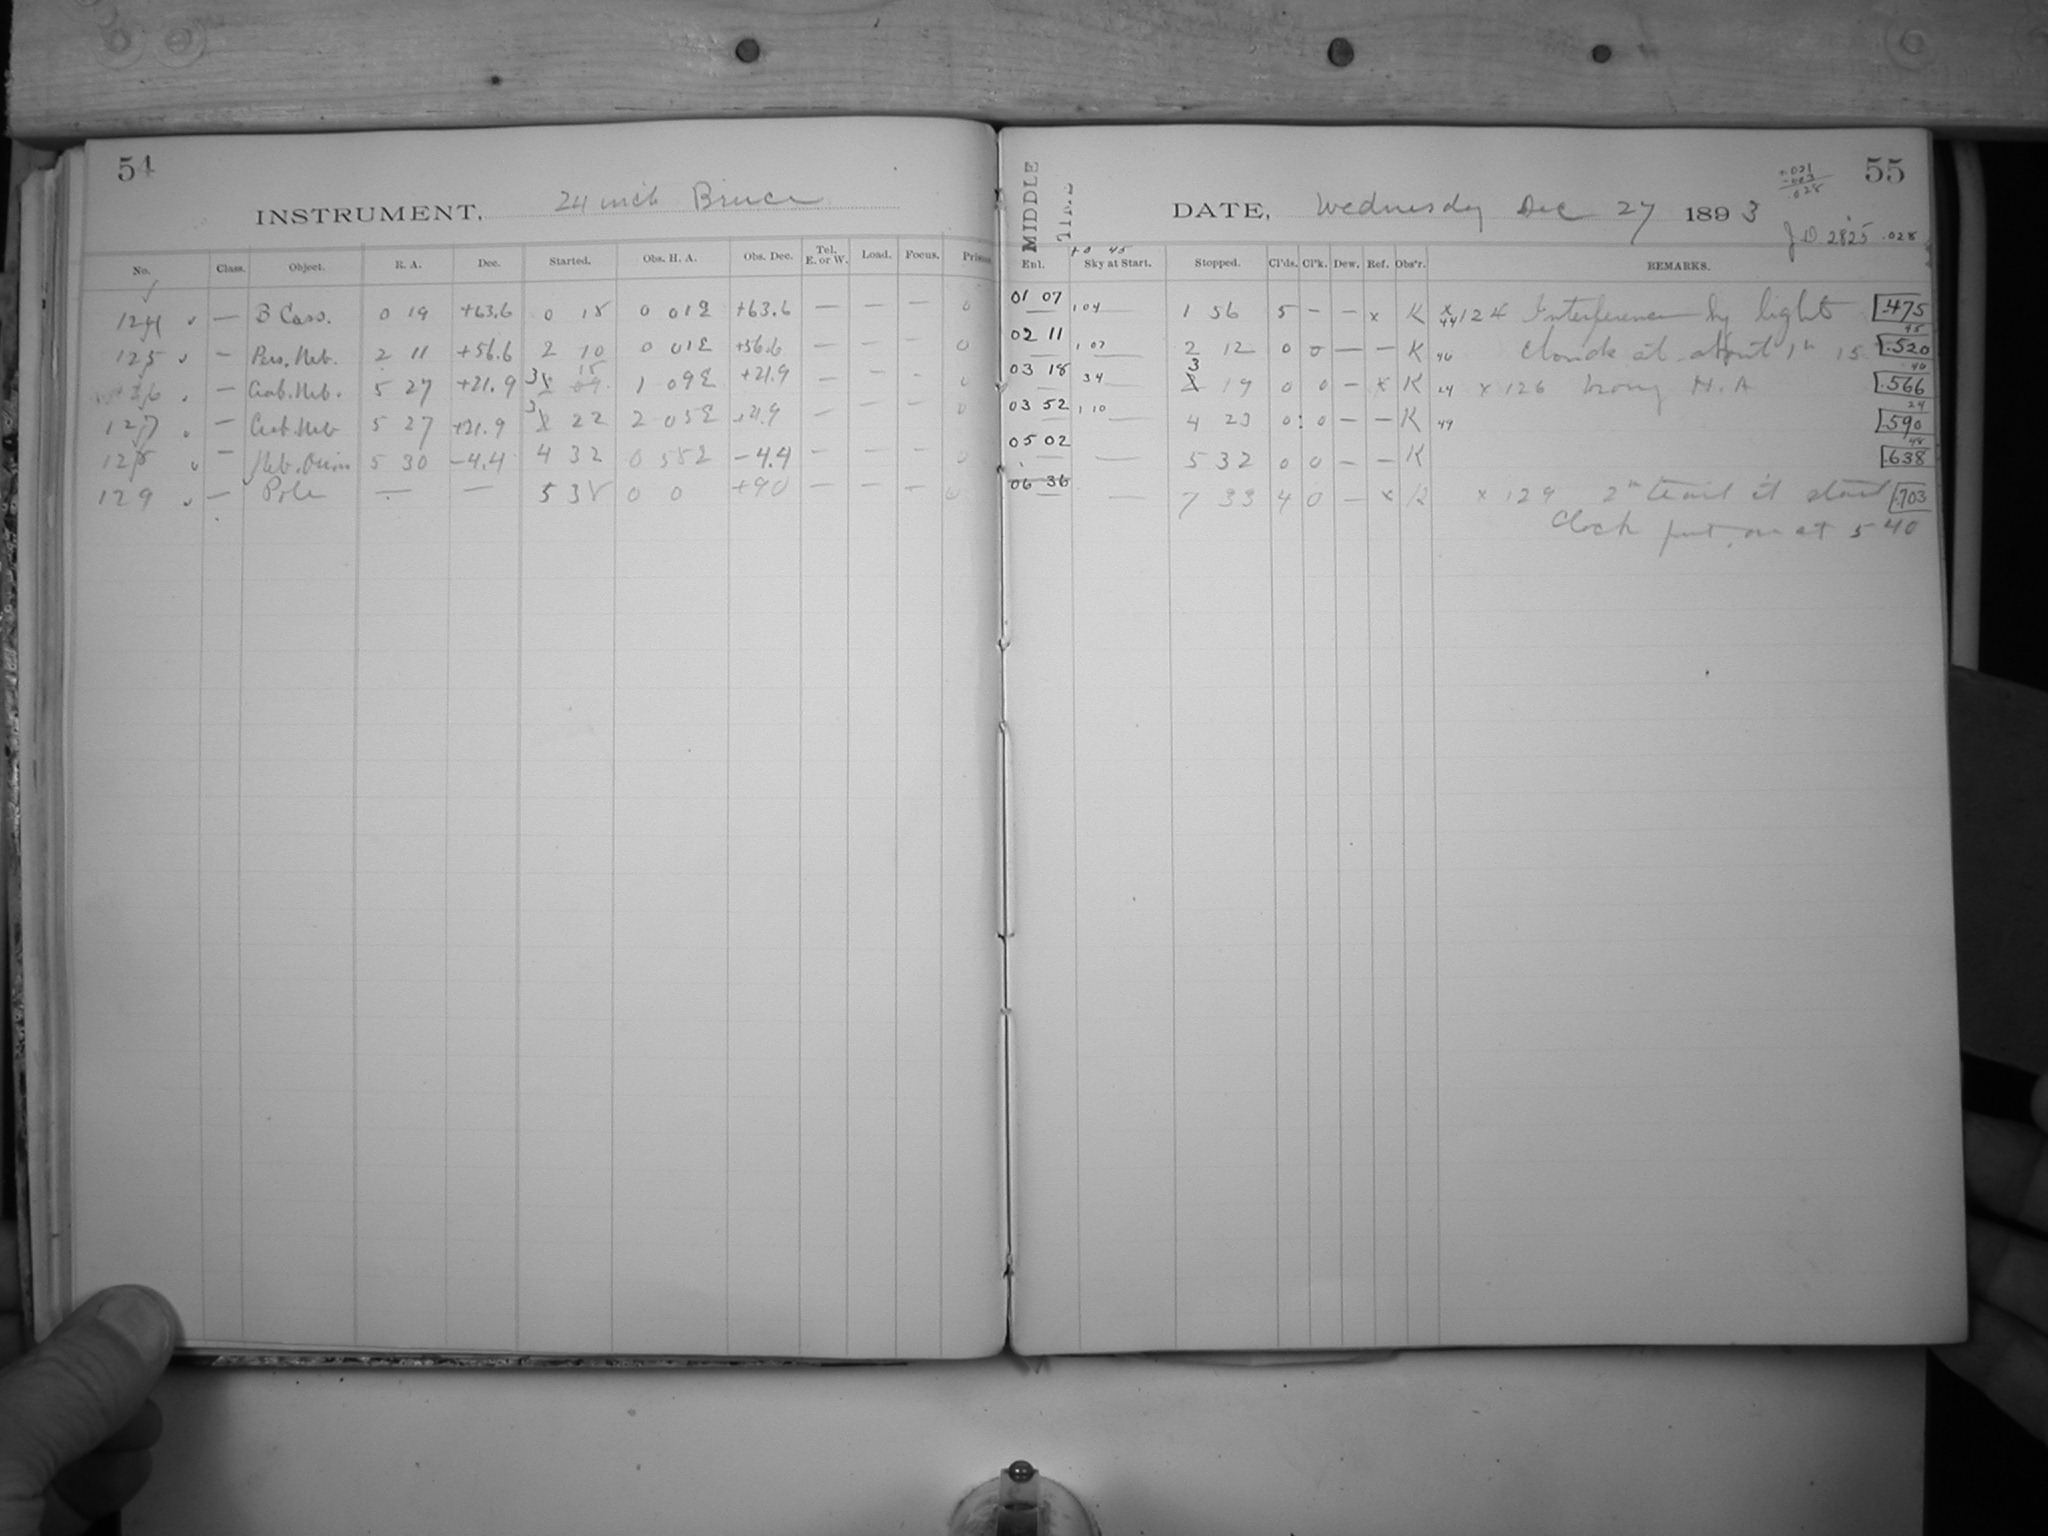 54
INSTRUMENT, 24 inch Bruce
No. Class. Object. R. A. Dec. Started. Obs. H. A. Obs. Dec. Tel. E. or W. Load. Focus. Prism
124 — B Cass. 0 19 +63.6 0 18 0 01 E +63.6 — — — 0
125 — Pers. Neb. 2 11 +56.6 2 10 0 01 E +56.6 — — — 0
126 — Crab. Neb. 5 27 +21.9 3 1 09 E +21.9 — — - 0
127 — Crab. Neb 5 27 +21.9 3 22 2 05 E +21.9 — — — 0
128 — Neb. Orion 5 30 -4.4 4 32 0 58 E -4.4 - - - 0
129 — Pole — — 5 38 0 0 +90 — — - 0
55
MIDDLE TIME
DATE, Wednesday Dec 27 1893
.021
.003
.028
J D 2825 .028
+0 45
Enl. Sky at Start. Stopped. Cl'ds. Cl'k. Dew. Ref. Obs'r. REMARKS.
01 07 1 04 1 56 5 - - x K 44 x 124 Interference by light .475
45
02 11 1 07 2 12 0 0 — — K 46 Clouds at about 1h 15 .520
40
03 18 34 3 19 0 0 - x K 24 x 126 Wrong H. A .566
24
03 52 1 10 4 23 0: 0 — — K 49 .590
48
05 02 — 5 32 0 0 — — K .638
06 36 — 7 33 4 0 — x K x 129 2m trail at start .703
Clock put on at 5 40